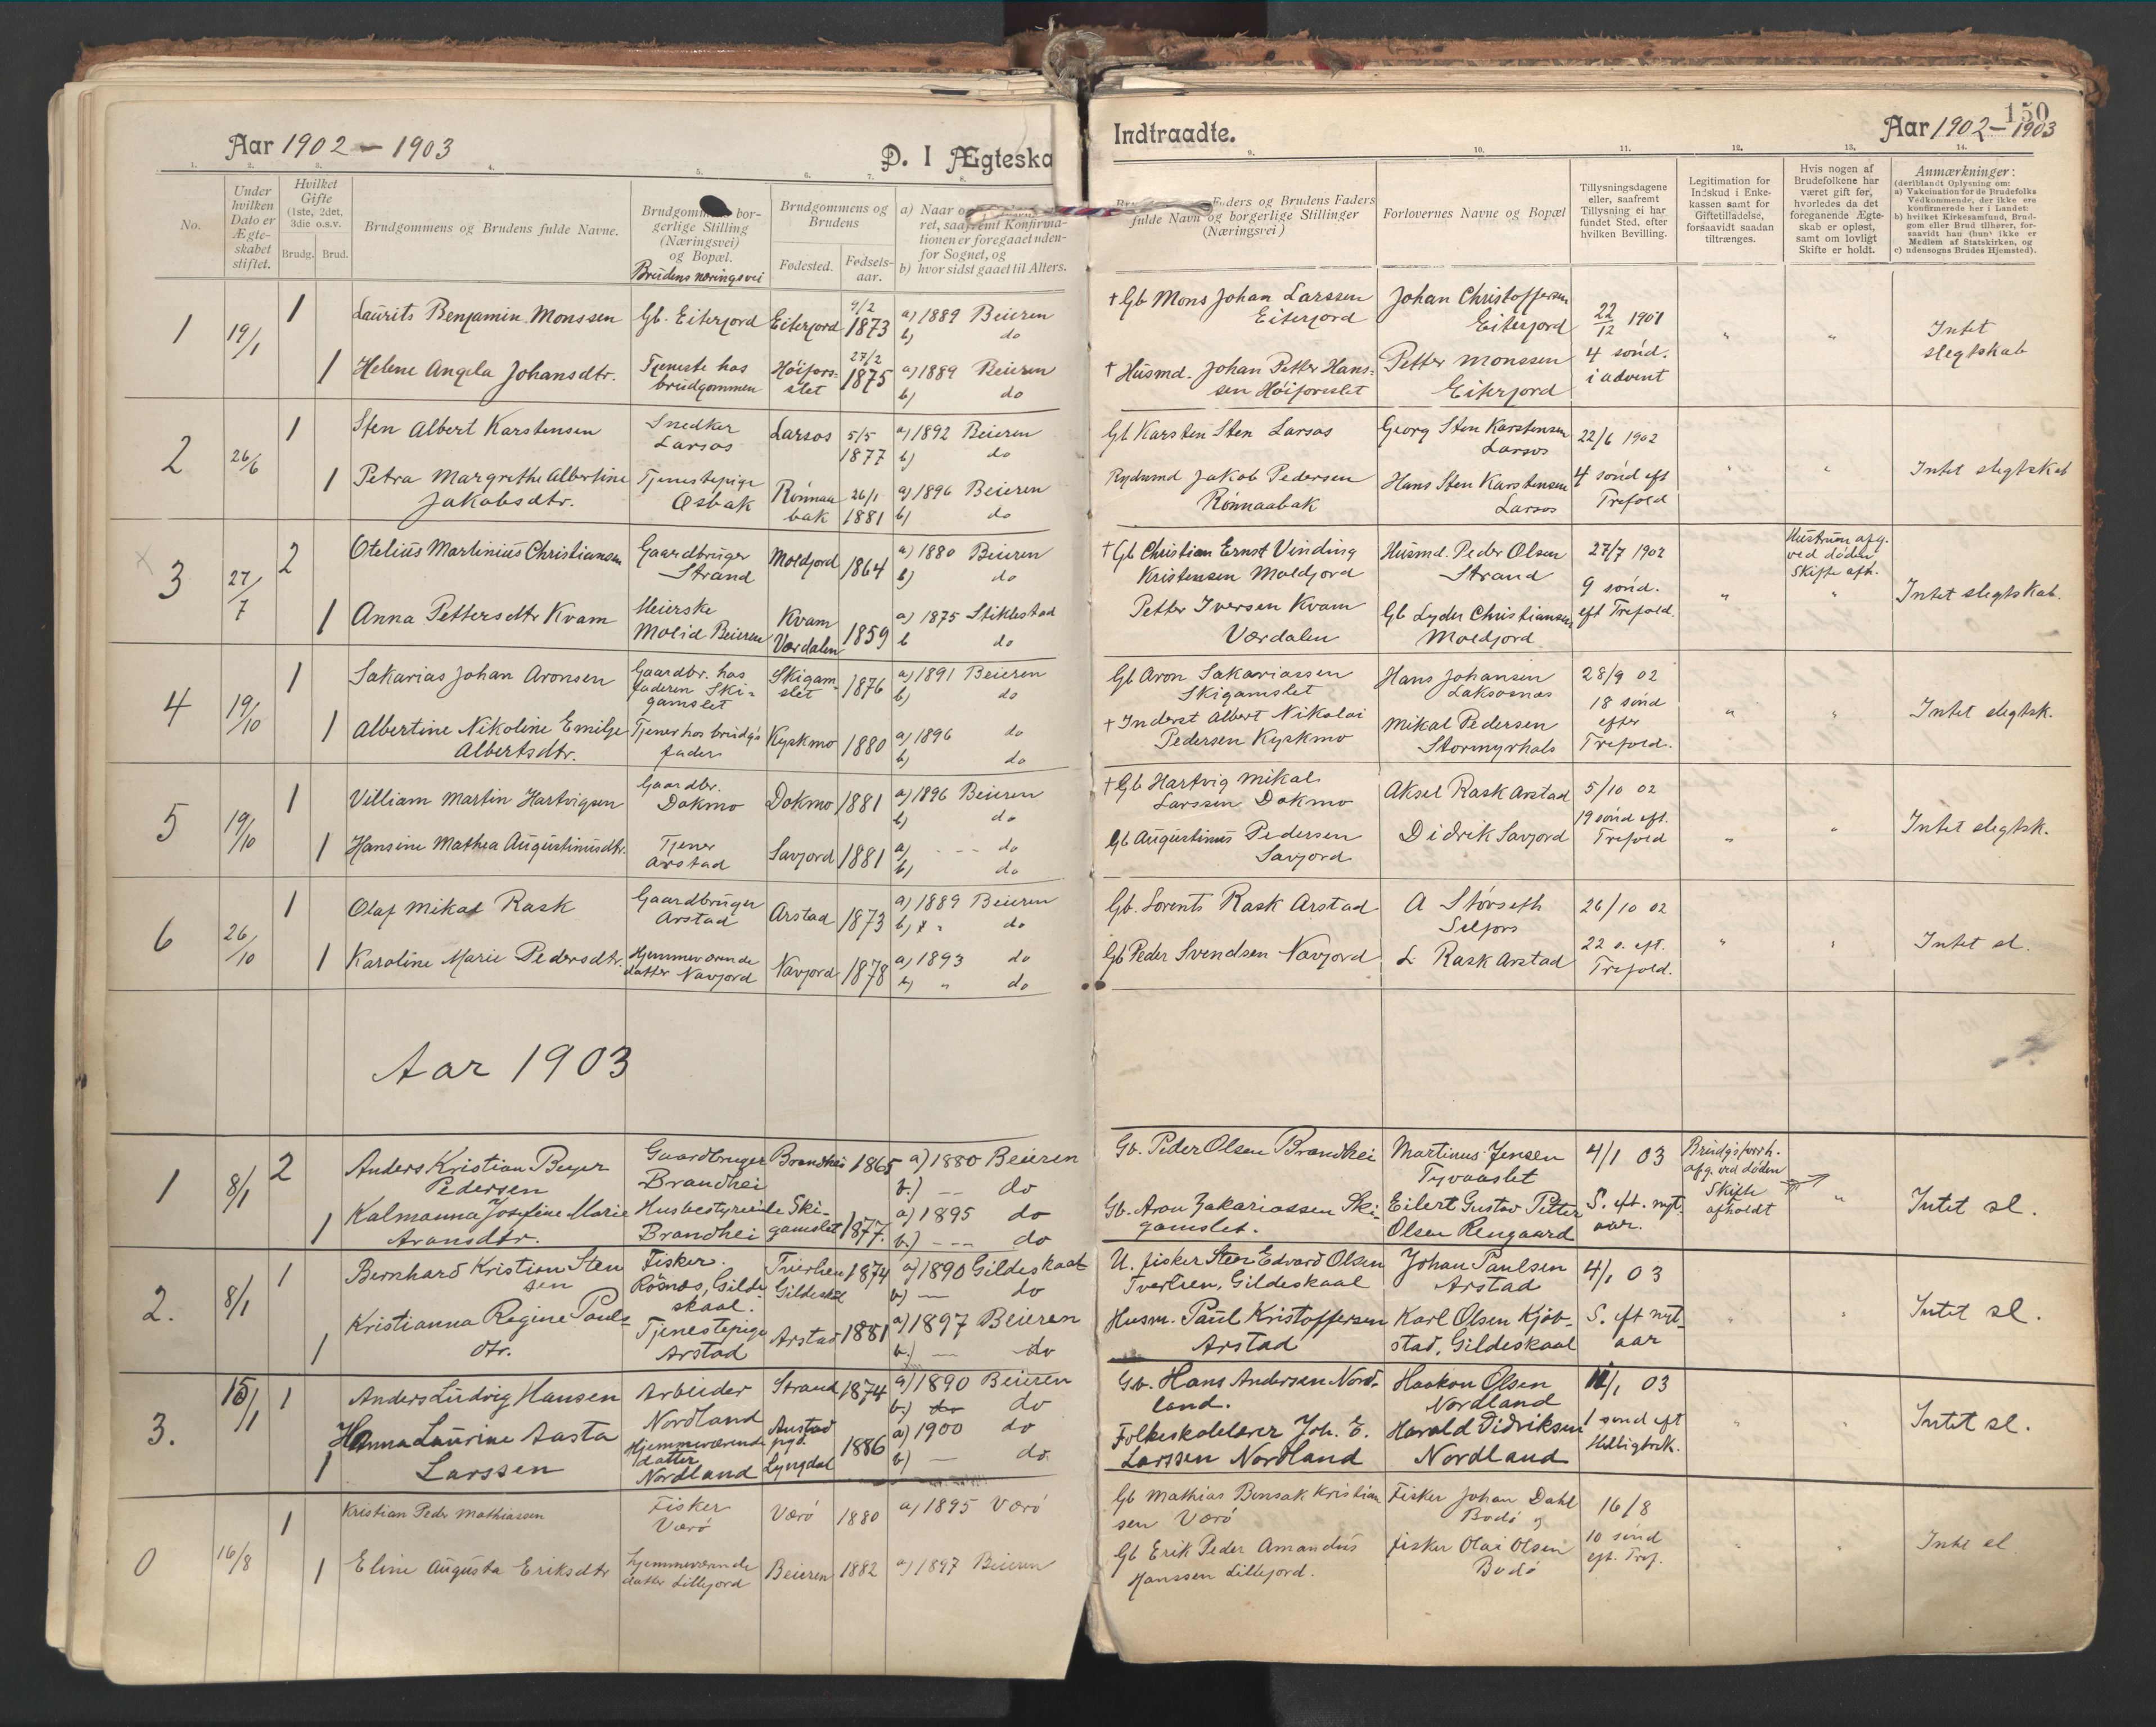 Aar 1902 – 1903
D. I Ægteska
1. 2. 3. 4. 5. 6. 7. 8.
No.
Under hvilken Dato er Ægteskabet stiftet.
Hvilket Gifte (1ste, 2det, 3die o.s.v.
Brudg. Brud.
Brudgommens og Brudens fulde Navne.
Brudgommens borgerlige Stilling (Næringsvei) og Bopæl.
Brudens næringsvei
Brudgommens og Brudens
Fødested. Fødselsaar.
a) Naar og
ret, saafremt Konfirma-
tionen er foregaaet uden-
for Sognet, og
b) hvor sidst gaaet til Alters.
1 19/1 1 Laurits Benjamin Monssen Gb. Eiterjord Eiterjord 9/2 1873 a) 1889 Beieren
b) do
1 Helene Angela Johansdtr. Tjeneste hos brudgommen Høifors-slet 27/2 1875 a) 1889 Beieren
b) do
2 26/6 1 Sten Albert Karstensen Snedker Larsos Larsos 5/5 1877 a) 1892 Beieren
b) do
1 Petra Margrethe Albertine Jakobsdtr. Tjenestepige Osbak Rønnaabak 26/1 1881 a) 1896 Beieren
b) do
3 27/7 2 Otelius Martinius Christiansen Gaardbruger Strand Moldjord 1864 a) 1880 Beieren
b) do
1 Anna Pettersdtr Kvam Meierske Molid Beieren Kvam Værdalen 1859 a) 1875 Stiklestad
b do
4 19/10 1 Sakarias Johan Aronsen Gaardbr. hos faderen Ski-gamslet Skigam-slet 1876 a) 1891 Beieren
b) do
1 Albertine Nikoline Emilie Albertsdtr. Tjener hos brudg's fader Kyskmo 1880 a) 1896 do
b) do
5 19/10 1 Villiam Martin Hartvigsen Gaardbr. Dokmo Dokmo 1881 a) 1896 Beieren
b) do
1 Hansine Mathea Augustinusdtr. Tjener Arstad Savjord 1881 a) - - - do
b) do
6 26/10 1 Olaf Mikal Rask Gaardbruger Arstad Arstad 1873 a) 1889 Beieren
b) " do
1 Karoline Marie Pedersdtr. Hjemmeværende datter Navjord Navjord 1878 a) 1893 do
b) " do
Aar 1903
1 8/1 2 Anders Kristian Beyer Pedersen Gaardbruger Brandhei Brandhei 1865 a) 1880 Beieren
b.) — do
1 Kalmanna Josefine Marie Aronsdtr. Husbestyrerinde Brandhei Ski-gamslet 1877. a) 1895 do
b.) --- do
2. 8/1 1 Bernhard Kristian Stensen Fisker. Røsnæs, Gilde-skaal. Gildeskl 1874 a) 1890 Gildeskaal
b) — do
1 Kristianna Regine Pauls-dtr. Tjenestepige Arstad Arstad 1881 a) 1897 Beieren
b.) — do
3. 15/1 1 Anders Ludvig Hansen Arbeider Nordland Strand 1874 a) 1890 Beieren
b.) do do
1 Hanna Laurine Aasta Larssen Hjemmeværende datter Nordland Austad pgd. Lyngdal 1886 a) 1900 do
b) — do.
0 16/8 1 Kristian Peder Mathiassen Fisker Værø Værø 1880 a) 1895 Værø
1 Eline Augusta Eriksdtr hjemmeværende datter Lillejord Beieren 1882 a) 1897 Beieren
Indtraadte.
150
Aar 1902 – 1903
9. 10. 11. 12. 13. 14.
Faders og Brudens Faders
fulde Navn og borgerlige Stillinger
(Næringsvei)
Forlovernes Navne og Bopæl
Tillysningsdagene eller, saafremt Tillysning ei har fundet Sted, efter hvilken Bevilling.
Legitimation for Indskud i Enkekassen samt for Giftetilladelse, forsaavidt saadan tiltrænges.
Hvis nogen af Brudefolkene har været gift før, hvorledes da det foregaaende Ægteskab er opløst, samt om lovligt Skifte er holdt.
Anmærkninger:
(deriblandt Oplysning om:
a) Vakcination for de Brudefolks Vedkommende, der ikke ere konfirmerede her i Landet:
b) hvilket Kirkesamfund, Brudgom eller Brud tilhører, forsaavidt han (hun) ikke er Medlem af Statskirken, og
c) udensogns Brudes Hjemsted).
† Gb Mons Johan Larssen Eiterjord Johan Christoffersen Eiterjord 22/12 1901 " " Intet slegtskab
† Husmd. Johan Petter Hans-sen Høiforsslet Petter Monssen Eiterjord 4 sønd. i advent
Gb Karsten Sten Larsos Georg Sten Karstensen Larsos 22/6 1902 " " Intet slegtskab
Jakob Pedersen Rønnaabak Hans Sten Karstensen Larsos 4 sønd eft Trefold
† Gb Christian Ernst Vinding Kristensen Moldjord Husmd. Peder Olsen Strand 27/7 1902 Hustruen afg. ved døden Skifte afh.
Petter Iversen Kvam Værdalen Gb Lyder Christiansen Moldjord 9 sønd. eft Trefold. " " Intet slegtskab.
Gb Aron Sakariassen Skigamslet Hans Johansen Laksosnæs 28/9 02
† Inderst Albert Nikolai Pedersen Kyskmo Mikal Pedersen Stormyrhals 18 sønd efter Trefold. " " Intet slegtsk.
† Gb Hartvig Mikal Larssen Dokmo Aksel Rask Arstad 5/10 02
Gb Augustinus Pedersen Savjord Didrik Savjord 19 sønd eft. Trefold " " Intet slegtsk.
Gb. Lorents Rask Arstad A Størseth Selfors 26/10 02
Gb Peder Svendsen Navjord L. Rask Arstad 22 s. eft. Trefold. " " Intet sl.
Gb. Peder Olsen Brandhei Martinus Jensen Tvvaaslet 4/1 03 Brudgs forrh. afg. ved døden Skifte afholdt
Gb. Aron Zakariassen Ski-gamslet. Eilert Gustav Petter Olsen Rengaard S. eft. nyt-aar. " Intet sl.
U. fisker Sten Edvard Olsen Tverlien, Gildeskaal Johan Paulsen Arstad 4/1 03
Husm. Paul Kristoffersen Arstad Karl Olsen Kjøb-stad, Gildeskaal S. eft nyt-aar Intet sl.
Gb. Hans Andersen Nord-land. Haakon Olsen Nordland 11/1 03
Folkeskolelærer Joh. E. Larssen Nordland Harald Didriksen Nordland 1 sønd eft Helligtrek. Intet sl.
Gb Mathias Bensak Kristian sen Værø Fisker Johan Dahl Bodø og 16/8
Gb Erik Peder Amandus Hanssen Lillejord. fisker Olai Olsen Bodø 10 sønd eft. Tref. Inte sl